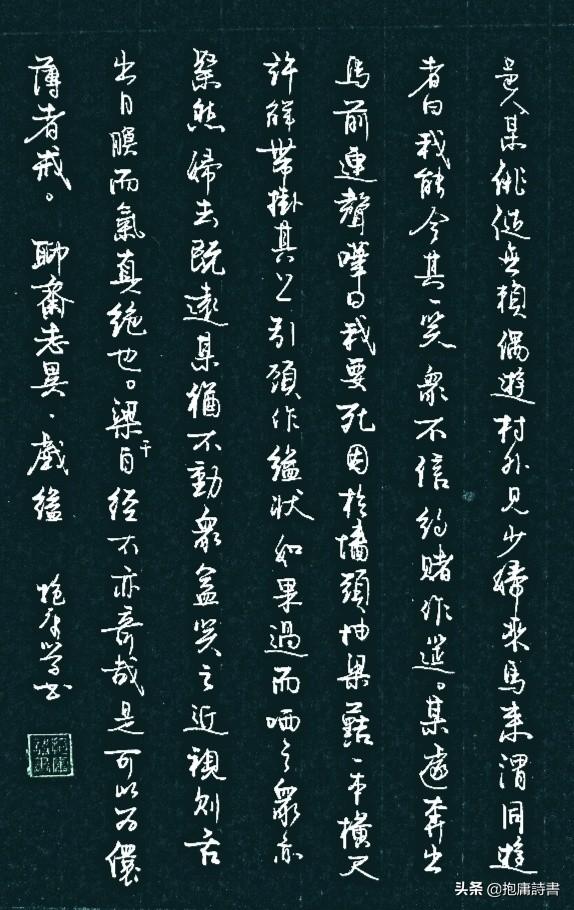 邑人某佻㒓無賴偶遊村外見少婦乘馬来謂同遊
者曰我能令其一笑衆不信約賭作筵。某遽奔出
馬前連聲嘩曰我要死因於墻頭抽粱䕸一本橫尺
許解帶掛其上引頸作縊狀如果過而哂之衆亦
粲然婦去既遠某猶不動衆益笑之近視則舌
出目瞑而氣真絶也。粱干自經不亦奇哉是可以為儇
薄者戒。聊齋志異·戲縊
抱庸学书
头条 @抱庸詩書